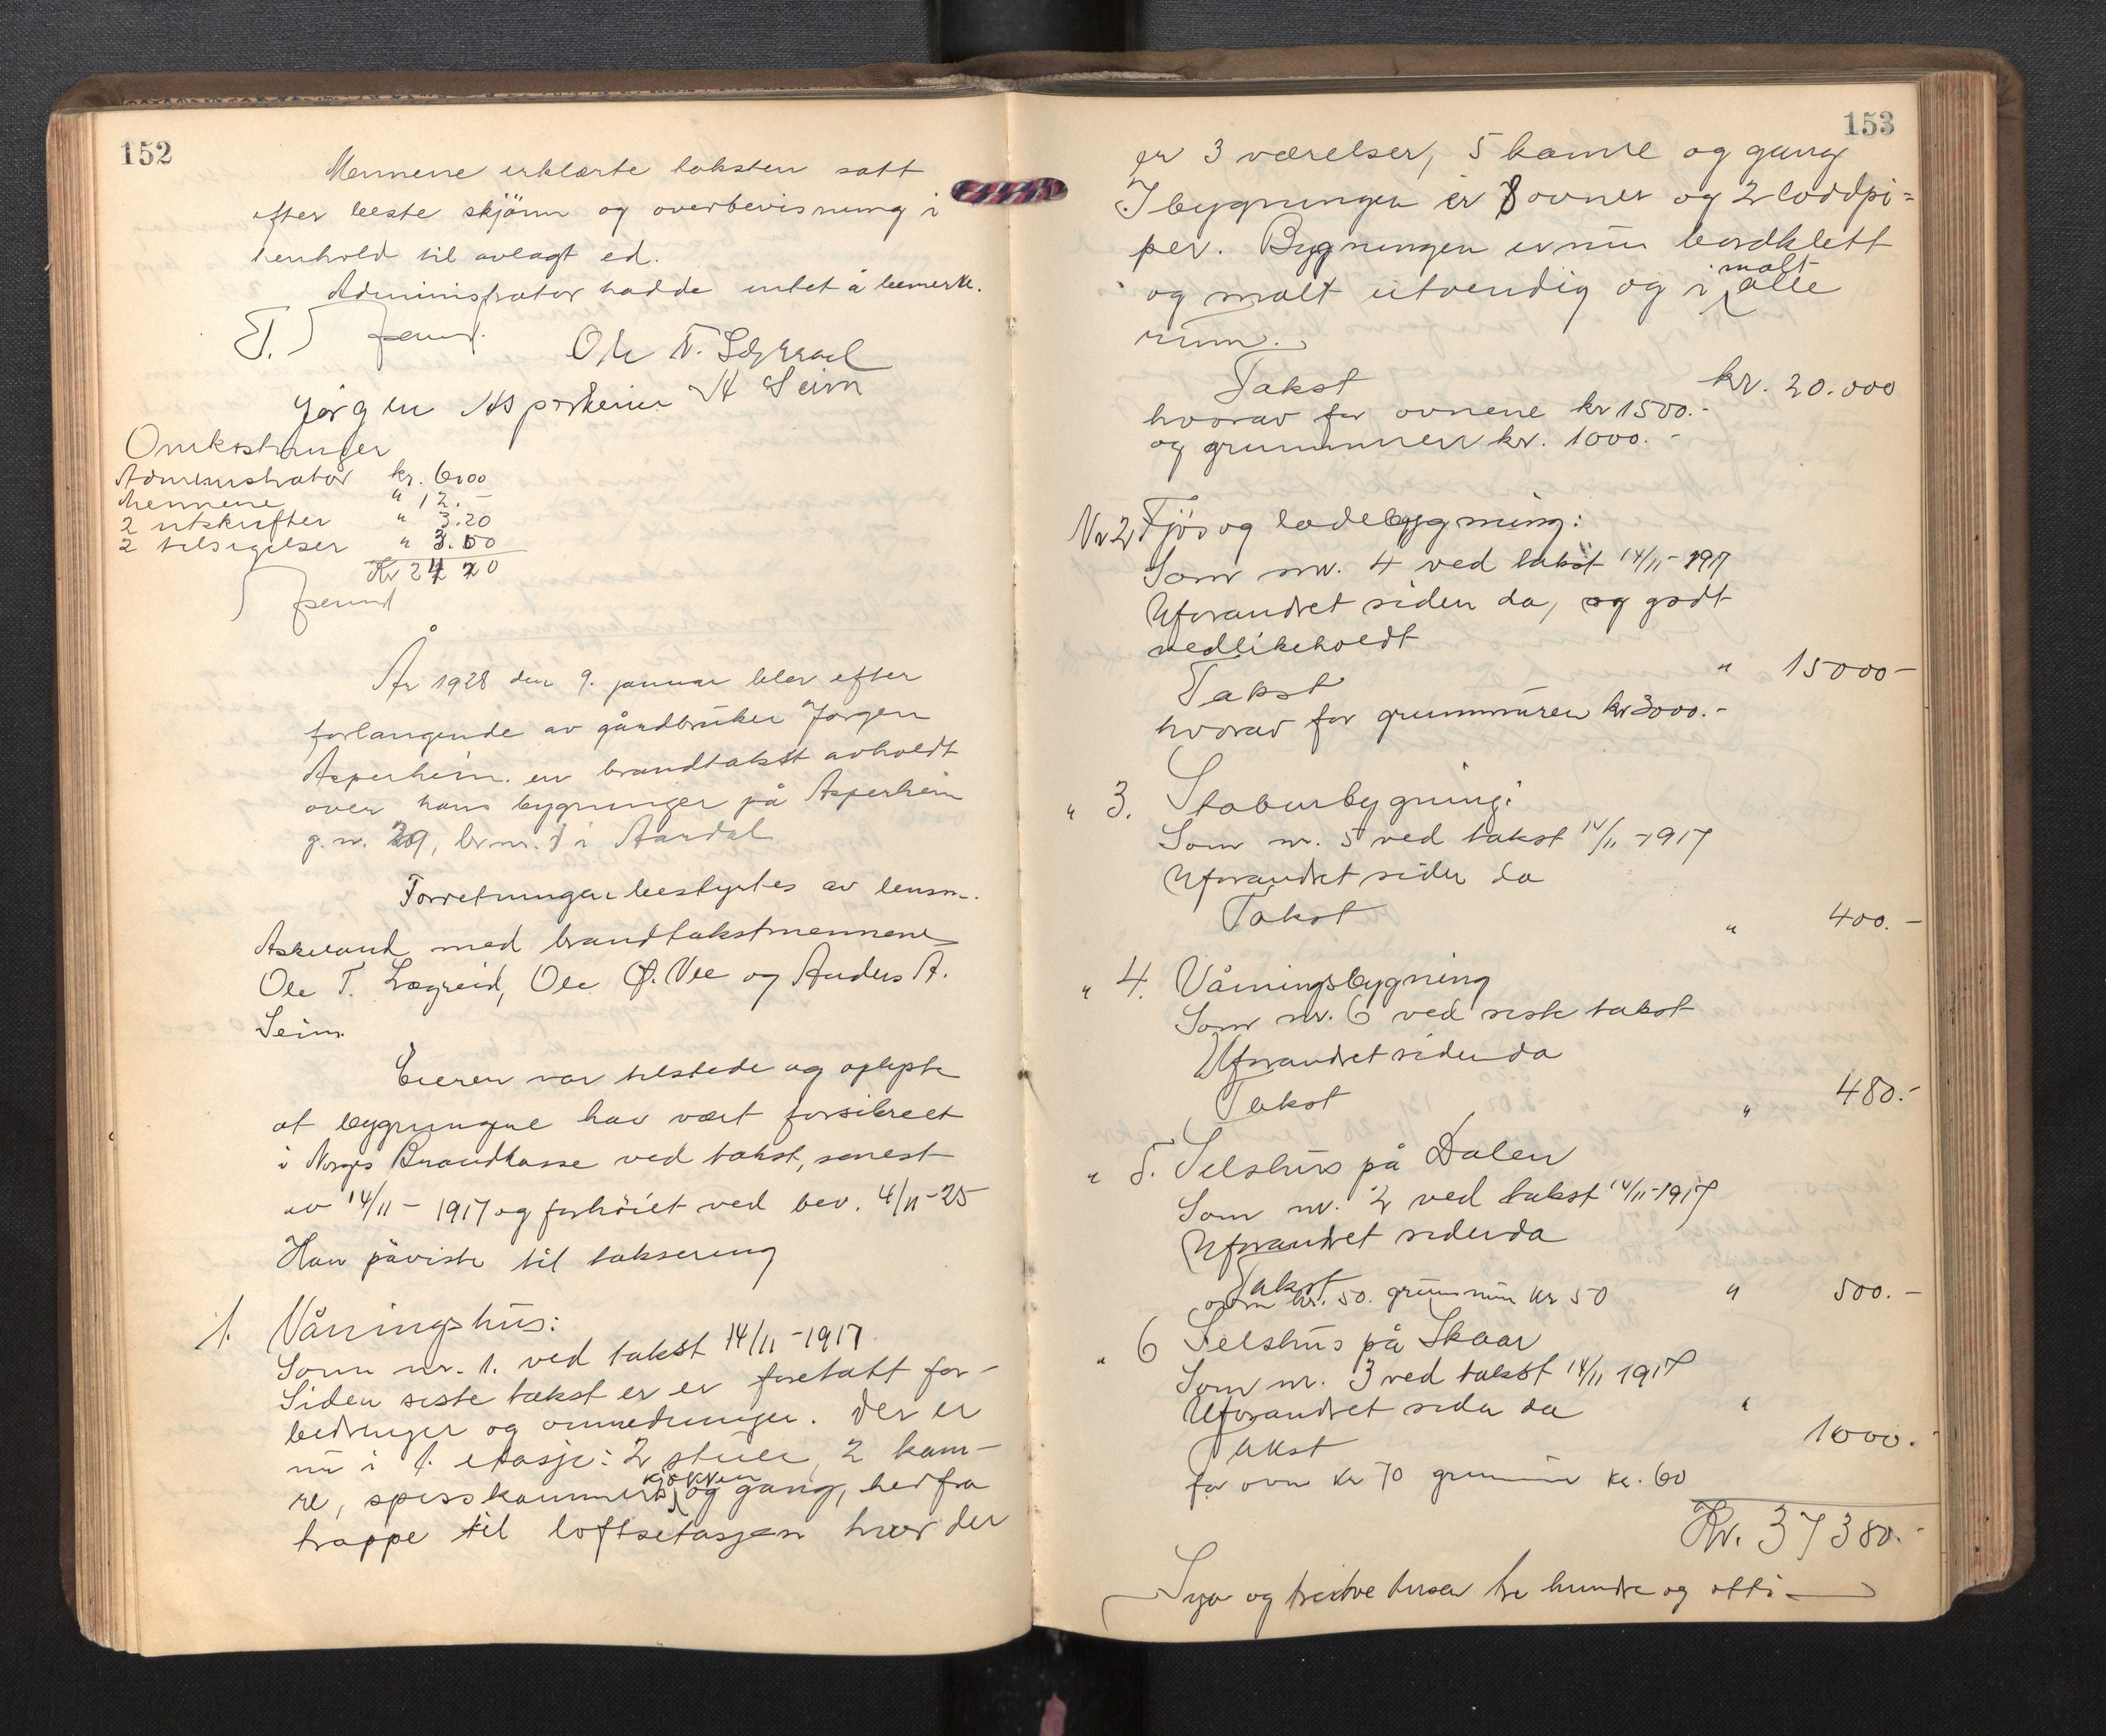 152
Mennene erklærte taksten satt
efter beste skjönn og overbevisning i
henhold til avlagt ed.
Administrator hadde intet å bemerke.
Ole T. Lægreid
Jörgen Asperheim A Seim
Omkostninger
Administrator kr. 6.00
Mennene " 12.-
2 utskrifter " 3.20
2 tilsigelser " 3.00
Kr 24 20
År 1928 den 9. januar blev efter
forlangende av gårdbruker Jörgen
Asperheim en brandtakst avholdt
over hans bygninger på Asperheim
g.nr. 29, br.nr. 1 i Aardal
Forretningen bestyrtes av lensm.
Askeland med brandtakstmennene
Ole T. Lægreid, Ole O. Vee og Anders A.
Seim.
Eieren var tilstede og oplyste
at bygningene har vært forsikret
i Norges Brandkasse ved takst, senest
av 14/11 - 1917 og forhöiet ved bev. 4/11-25
Han påviste til taksering
1. Våningshus:
Som nr. 1. ved takst 14/11 -1917
Siden siste takst er er foretatt for-
bedringer og omredninger. Der er
nu i 1. etasje: 2 stuer, 2 kam-
re, spisskammers kjökken og gang, herfra
trappe til loftsetasjen hvor der
153
er 3 værelser, 5 kamre og gang
I bygningen er 8 ovner og 2 loddpi=
per. Bygningen er nu bordklett
og malt utvendig og i malt alle
rum.
Takst kr. 20.000
hvorav for ovnene kr 1500.-
og grunnmuren kr. 1000.-
Nr 2 Fjös og ladebygning:
Som nr. 4 ved takst 14/11-1917
Uforandret siden da, og godt
vedlikeholdt
Takst " 15000-
hvorav for grunnmuren kr 3000.-
" 3. Staburbygning:
Som nr. 5 ved takst 14/11 -1917
Uforandret siden da
Takst " 400.-
" 4. Våningsbygning
Som nr. 6 ved siste takst
Uforandret siden da
Takst " 480.-
" 5. Selshus på Dalen
Som nr. 2 ved takst 14/11-1917
Uforandret siden da
Takst
ovn kr. 50. grunnmur kr 50 " 500.-
" 6 Selshus på Skaar
Som nr. 3 ved takst 14/11 1917
Uforandret siden da "
Takst 1000.-
for ovn kr 70 grunnmur kr. 60
Kr. 37380.-
Syv og tredve tusen tre hundre og otti